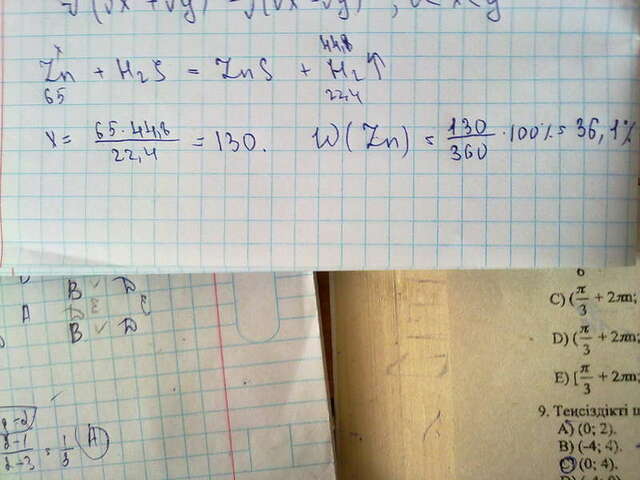 x 44,8
Zn + H₂S = ZnS + H₂↑
65 22,4
x = 65·44,8 / 22,4 = 130. W(Zn) = 130/360 · 100% = 36,1%
B D
A
B D
= 1/3 A
C) (π/3 + 2πn;
D) (π/3 + 2πn;
E) [π/3 + 2πn;
9. Теңсіздікті
A) (0; 2).
B) (-4; 4).
C) (0; 4).